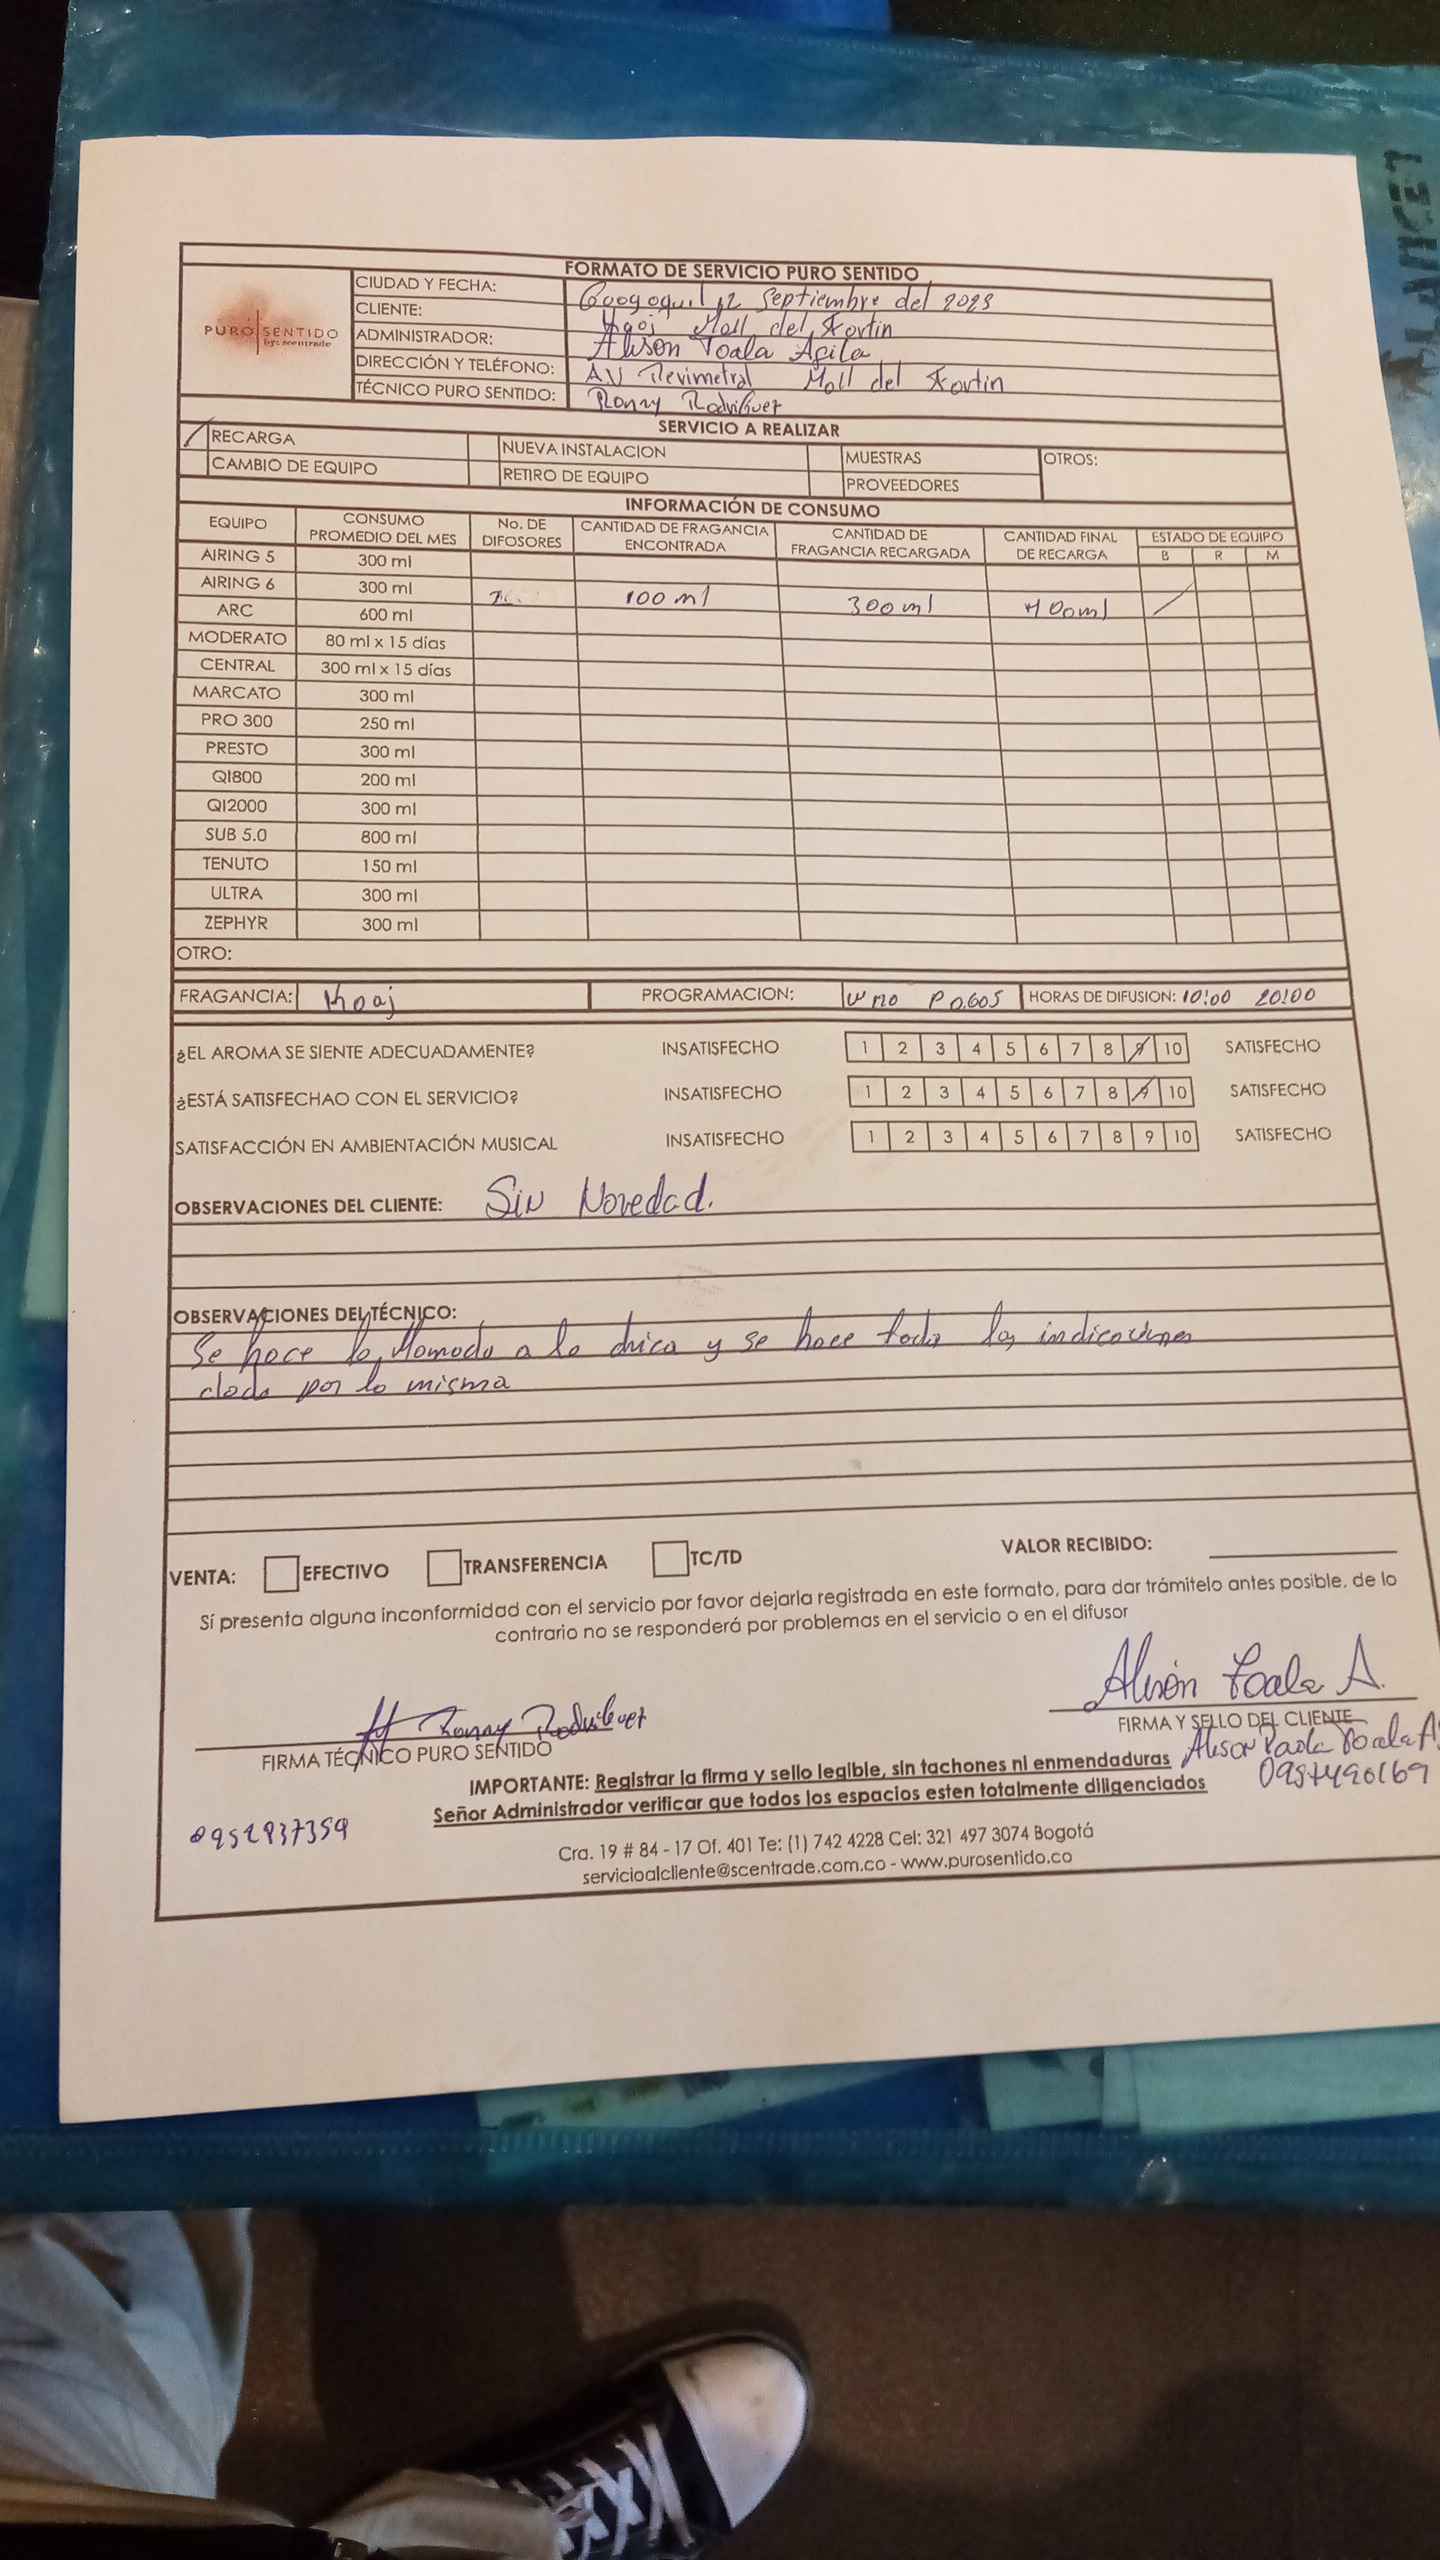 FORMATO DE SERVICIO PURO SENTIDO
PURO SENTIDO
by: scentrade
CIUDAD Y FECHA: Guayaquil 12 Septiembre del 2023
CLIENTE: Koaj Mall del Fortin
ADMINISTRADOR: Alison Toala Agila
DIRECCIÓN Y TELÉFONO: AV Perimetral Mall del Fortin
TÉCNICO PURO SENTIDO: Ronny Rodriguez
SERVICIO A REALIZAR
RECARGA NUEVA INSTALACION MUESTRAS OTROS:
CAMBIO DE EQUIPO RETIRO DE EQUIPO PROVEEDORES
INFORMACIÓN DE CONSUMO
EQUIPO CONSUMO PROMEDIO DEL MES No. DE DIFOSORES CANTIDAD DE FRAGANCIA ENCONTRADA CANTIDAD DE FRAGANCIA RECARGADA CANTIDAD FINAL DE RECARGA ESTADO DE EQUIPO
B R M
AIRING 5 300 ml
AIRING 6 300 ml
ARC 600 ml 100 ml 300 ml 400 ml
MODERATO 80 ml x 15 días
CENTRAL 300 ml x 15 días
MARCATO 300 ml
PRO 300 250 ml
PRESTO 300 ml
QI800 200 ml
QI2000 300 ml
SUB 5.0 800 ml
TENUTO 150 ml
ULTRA 300 ml
ZEPHYR 300 ml
OTRO:
FRAGANCIA: Koaj PROGRAMACION: HORAS DE DIFUSION: 10:00 20:00
¿EL AROMA SE SIENTE ADECUADAMENTE? INSATISFECHO 1 2 3 4 5 6 7 8 9 10 SATISFECHO
¿ESTÁ SATISFECHAO CON EL SERVICIO? INSATISFECHO 1 2 3 4 5 6 7 8 9 10 SATISFECHO
SATISFACCIÓN EN AMBIENTACIÓN MUSICAL INSATISFECHO 1 2 3 4 5 6 7 8 9 10 SATISFECHO
OBSERVACIONES DEL CLIENTE: Sin Novedad.
OBSERVACIONES DEL TÉCNICO:
Se hace la llamada a la chica y se hace toda las indicaciones
dada por la misma
VENTA: EFECTIVO TRANSFERENCIA TC/TD VALOR RECIBIDO:
Sí presenta alguna inconformidad con el servicio por favor dejarla registrada en este formato, para dar trámitelo antes posible, de lo
contrario no se responderá por problemas en el servicio o en el difusor
Ronny Rodriguez
Alison Toala A.
FIRMA TÉCNICO PURO SENTIDO
FIRMA Y SELLO DEL CLIENTE
Alison Paola Toala A
IMPORTANTE: Registrar la firma y sello legible, sin tachones ni enmendaduras
Señor Administrador verificar que todos los espacios esten totalmente diligenciados
0952937359
Cra. 19 # 84 - 17 Of. 401 Te: (1) 742 4228 Cel: 321 497 3074 Bogotá
servicioalcliente@scentrade.com.co - www.purosentido.co